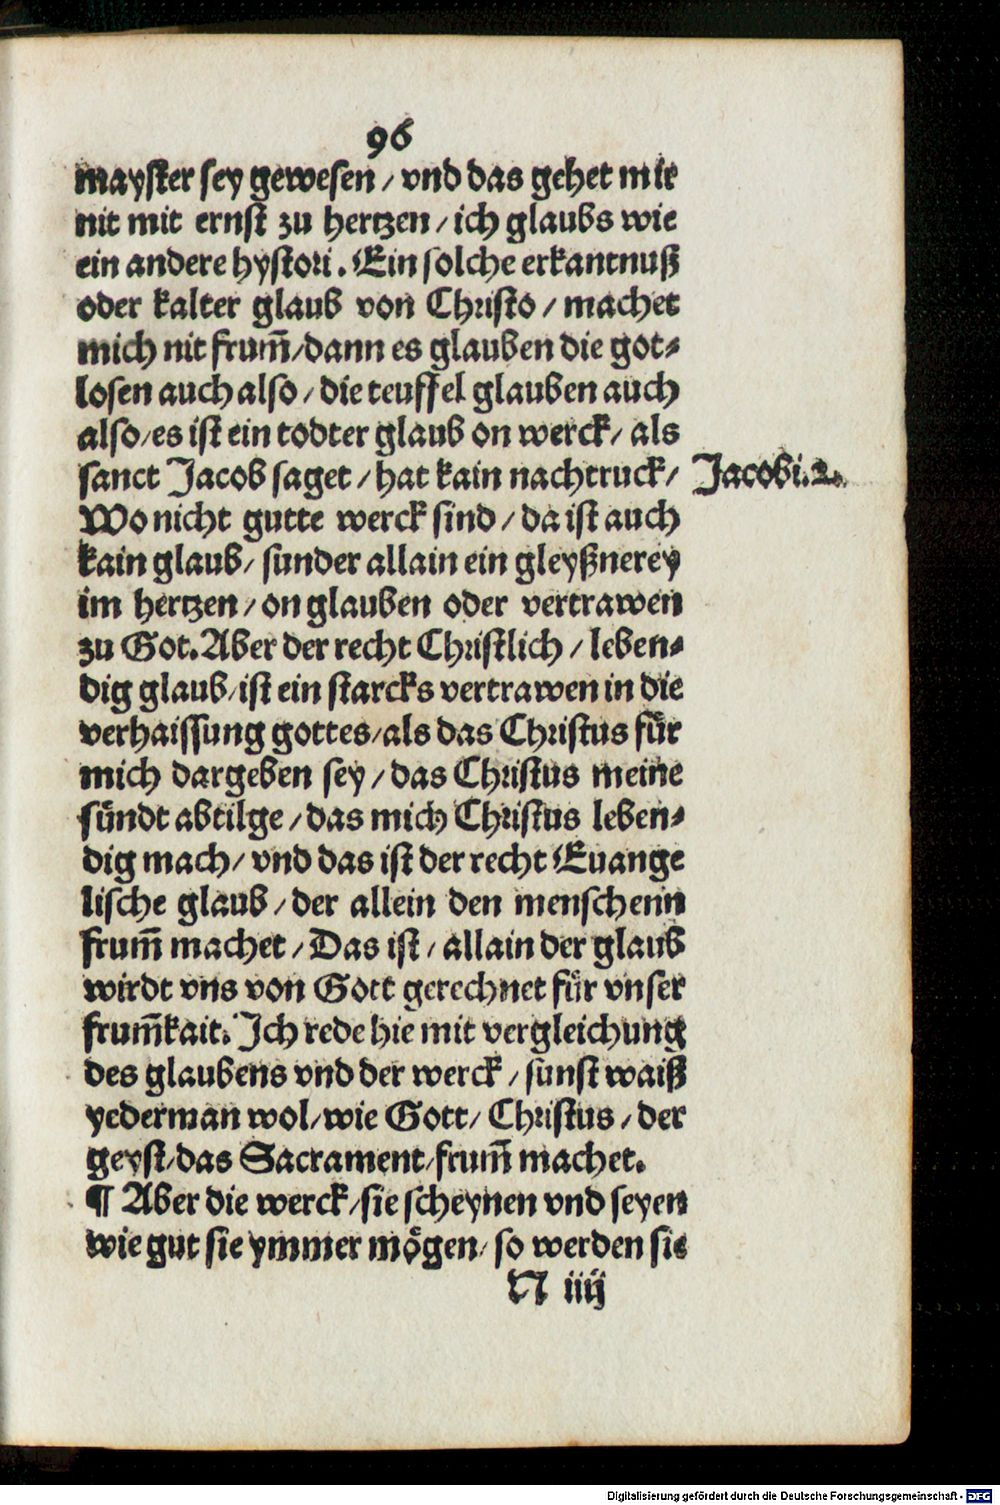 96
mayster sey gewesen / vnd das gehet mir
nit mit ernst zu hertzen / ich glaubs wie
ein andere hystori. Ein solche erkantnuß
oder kalter glaub von Christo / machet
mich nit frum̄ / dann es glauben die got⸗
losen auch also / die teuffel glauben auch
also / es ist ein todter glaub on werck / als
sanct Jacob saget / hat kain nachtruck /
Jacobi. 2.
Wo nicht gutte werck sind / da ist auch
kain glaub / sunder allain ein gleyßnerey
im hertzen / on glauben oder vertrawen
zu Got. Aber der recht Christlich / leben⸗
dig glaub / ist ein starcks vertrawen in die
verhaissung gottes / als das Christus für
mich dargeben sey / das Christus meine
sündt abtilge / das mich Christus leben⸗
dig mach / vnd das ist der recht Euange
lische glaub / der allein den menschenn
frum̄ machet / Das ist / allain der glaub
wirdt vns von Gott gerechnet für vnser
frum̄kait. Ich rede hie mit vergleichung
des glaubens vnd der werck / sunst waiß
yederman wol / wie Gott / Christus / der
geyst / das Sacrament / frum̄ machet.
¶ Aber die werck / sie scheynen vnd seyen
wie gut sie ymmer mögen / so werden sie
N iiij
Digitalisierung gefördert durch die Deutsche Forschungsgemeinschaft - DFG